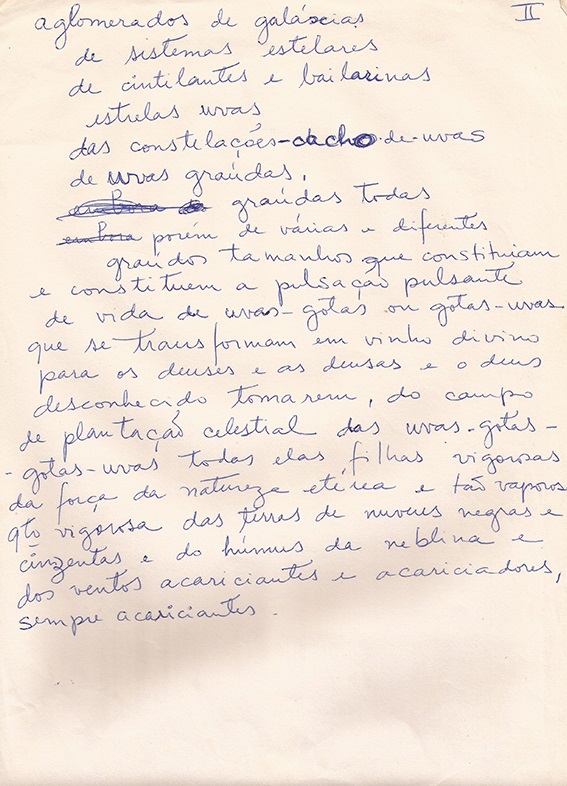 II
aglomerados de galáxias
de sistemas estelares
de cintilantes e bailarinas
estrelas uvas
das constelações-cacho-de-uvas
de uvas graúdas,
embora graúdas todas
embora porém de várias e diferentes
graúdos tamanhos que constituiam
e constituem a pulsação pulsante
de vida de uvas-gotas ou gotas-uvas
que se transformam em vinho divino
para os deuses e as deusas e o deus
desconhecido tomarem, do campo
de plantação celestial das uvas-gotas-
-gotas-uvas todas elas filhas vigorosas
da força da natureza etérea e tão vaporosa
qto vigorosa das terras de nuvens negras e
cinzentas e do húmus da neblina e
dos ventos acariciantes e acariciadores,
sempre acariciantes.